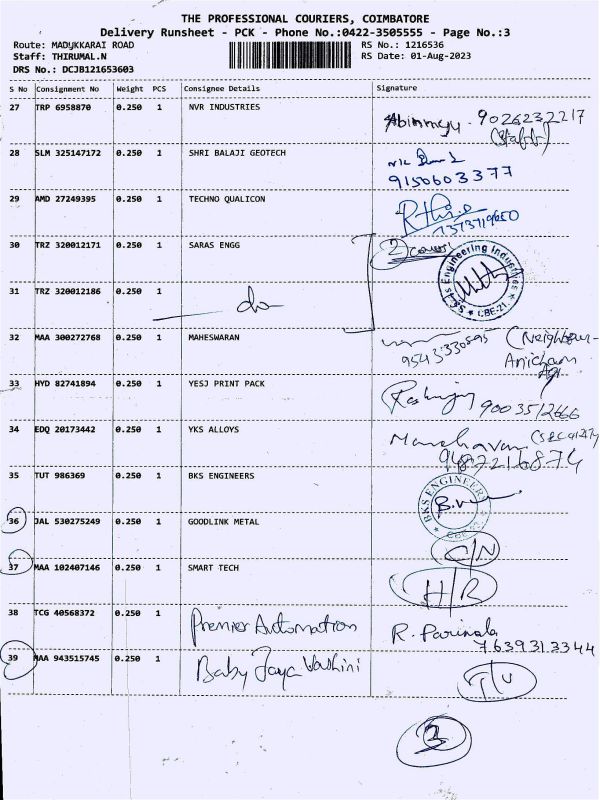 THE PROFESSIONAL COURIERS, COIMBATORE
Delivery Runsheet - PCK - Phone No.:0422-3505555 - Page No.:3
Route: MADUKKARAI ROAD RS No.: 1216536
Staff: THIRUMAL.N RS Date: 01-Aug-2023
DRS No.: DCJB121653603
S No Consignment No Weight PCS Consignee Details Signature
27 TRP 6958870 0.250 1 NVR INDUSTRIES
9026232217
(Staff)
28 SLM 325147172 0.250 1 SHRI BALAJI GEOTECH
9150603377
29 AMD 27249395 0.250 1 TECHNO QUALICON
7373719650
30 TRZ 320012171 0.250 1 SARAS ENGG 2
Engineering Industries
CBE-21
31 TRZ 320012186 0.250 1
do
32 MAA 300272768 0.250 1 MAHESWARAN
9543330895
33 HYD 82741894 0.250 1 YESJ PRINT PACK
9003512666
34 EDQ 20173442 0.250 1 YKS ALLOYS
9487216874
35 TUT 986369 0.250 1 BKS ENGINEERS
BKS ENGINEERS
36 JAL 530275249 0.250 1 GOODLINK METAL
C/N
37 MAA 102407146 0.250 1 SMART TECH
H/R
38 TCG 40568372 0.250 1 Premier Automation R. Parimala
7639313344
39 MAA 943515745 0.250 1 Baby Jaya Varshini
3